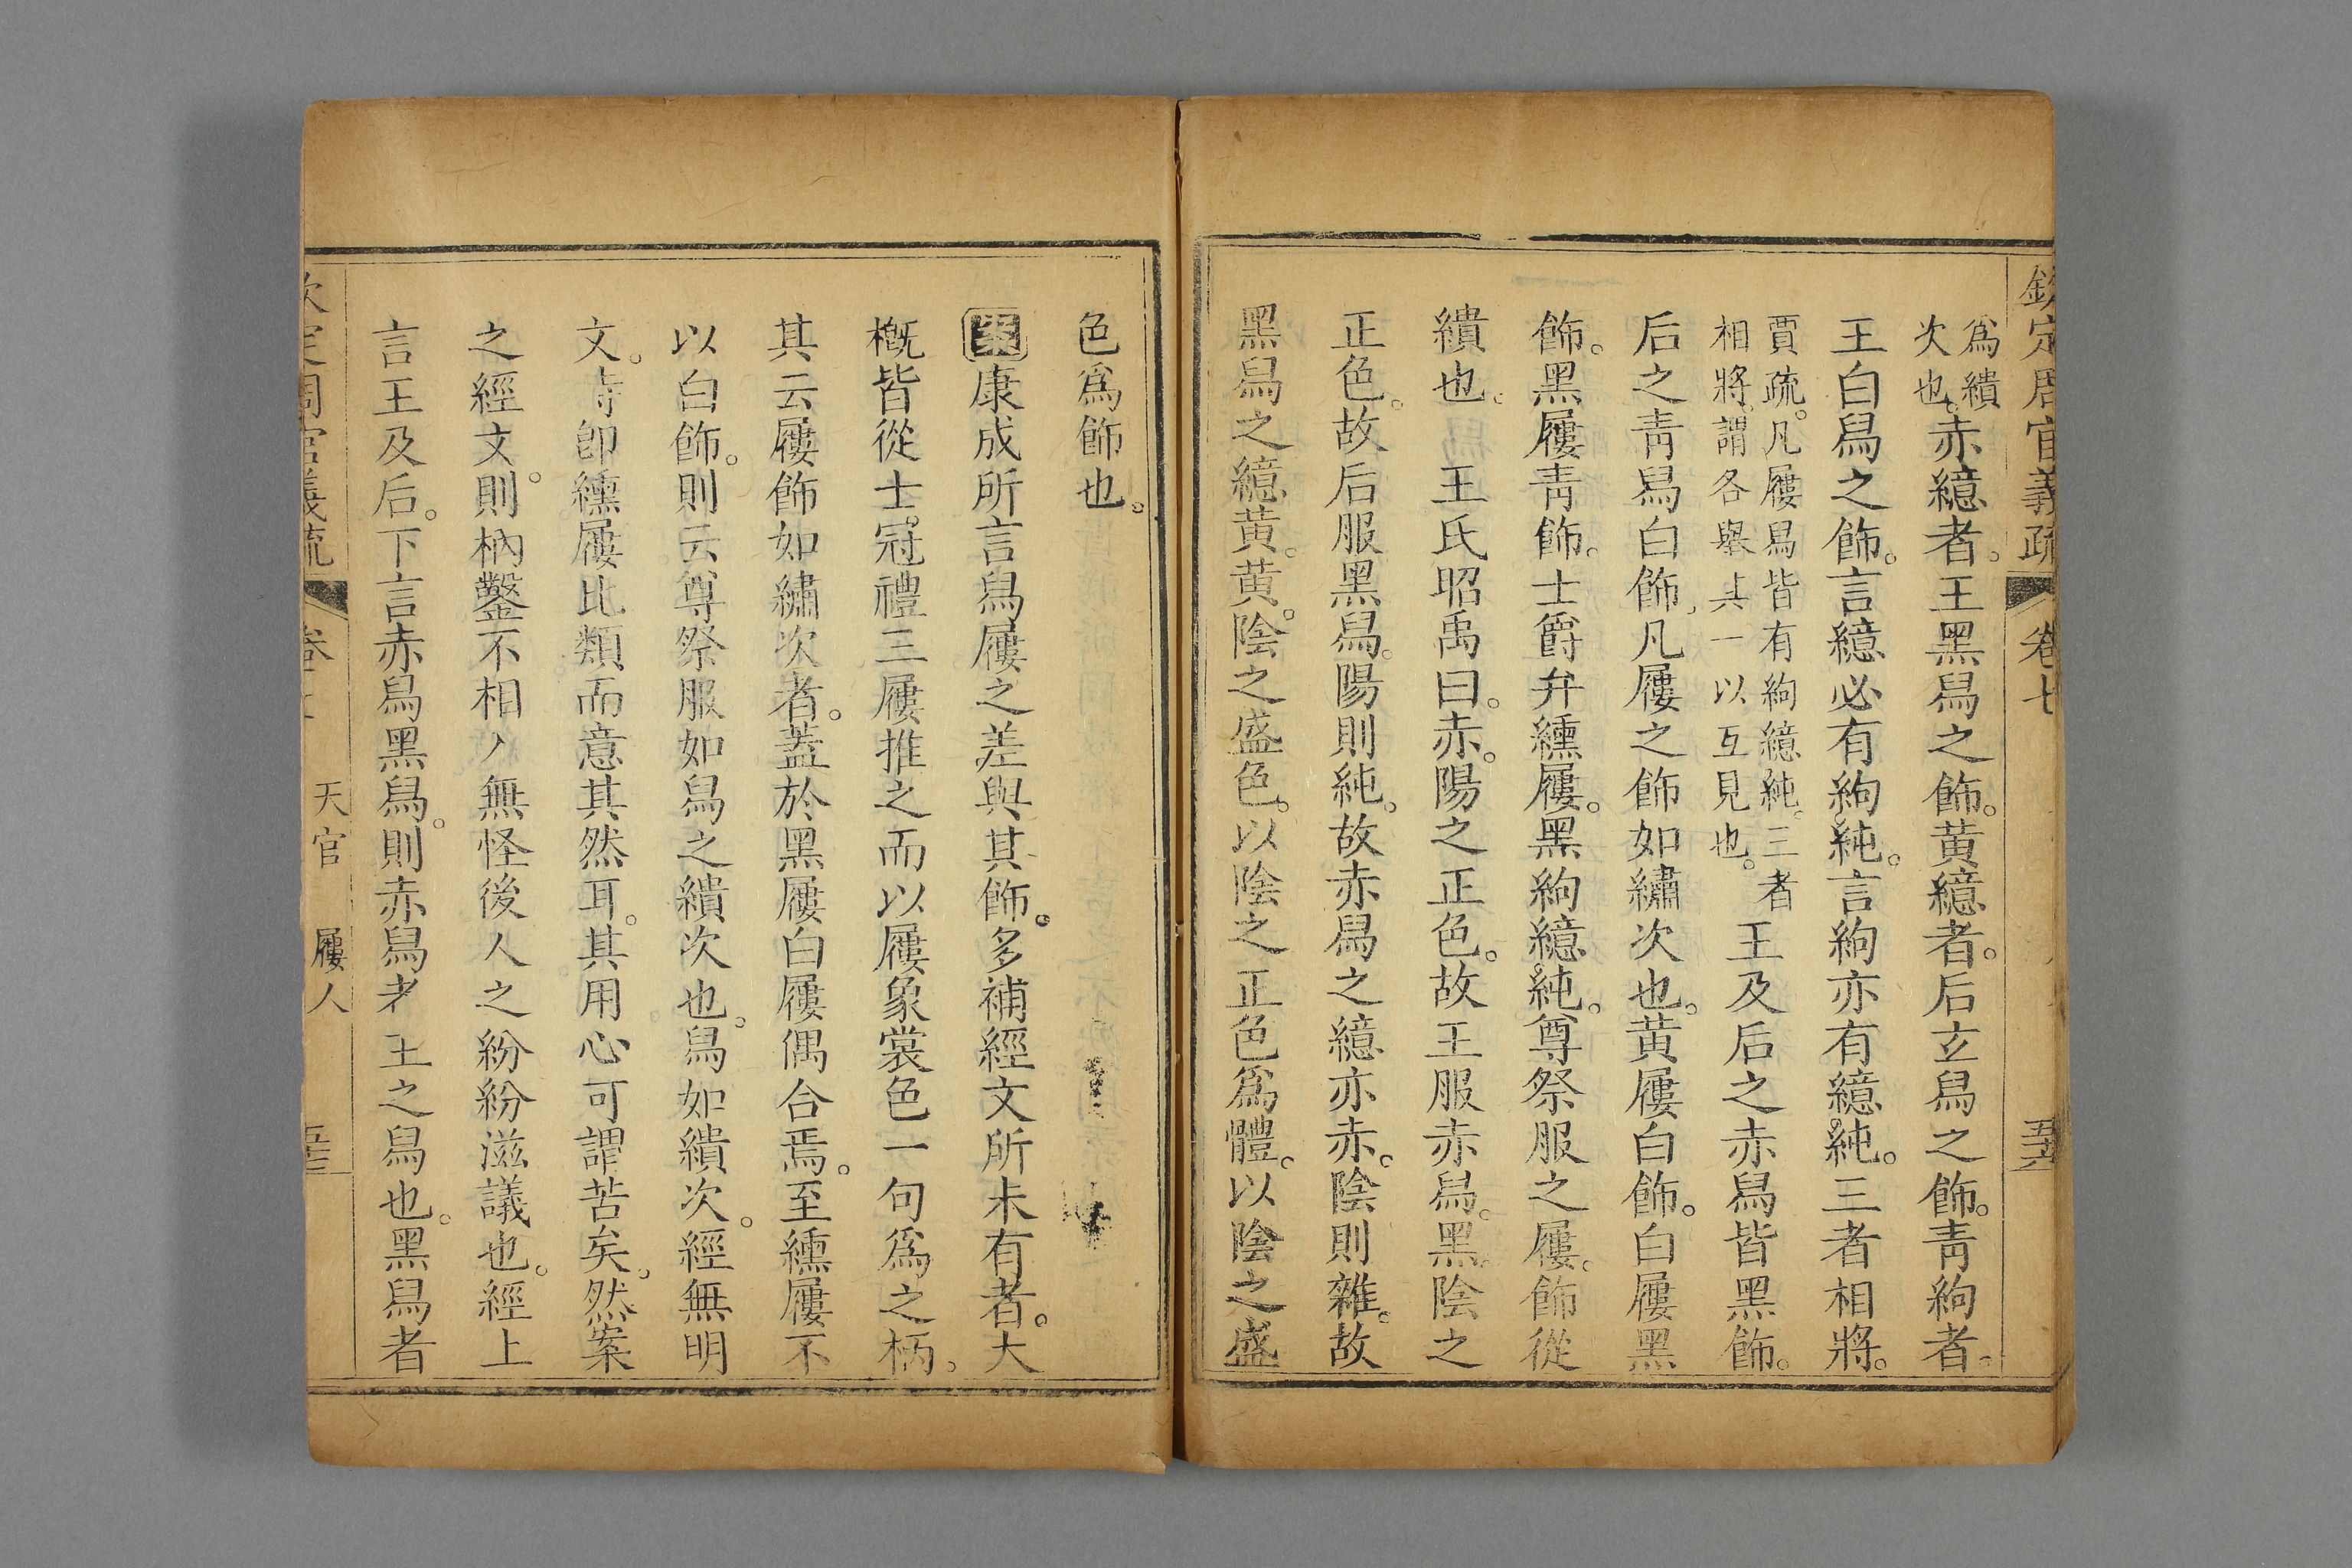 欽定周官義疏 卷七
爲繢
次也。赤繶者。王黑舄之飾。黃繶者。后玄舄之飾。靑絇者。
王白舄之飾。言繶必有絇純。言絇亦有繶純。三者相將。
賈疏。凡屨舄皆有絇繶純。三者
相將。謂各舉其一以互見也。王及后之赤舄皆黑飾。
后之靑舄白飾。凡屨之飾如繡次也。黃屨白飾。白屨黑
飾。黑屨靑飾。士爵弁纁屨。黑絇繶純。尊祭服之屨。飾從
繢也。 王氏昭禹曰。赤。陽之正色。故王服赤舄。黑。陰之
正色。故后服黑舄。陽則純。故赤舄之繶亦赤。陰則雜。故
黑舄之繶黃。黃。陰之盛色。以陰之正色爲體。以陰之盛
色爲飾也。
案康成所言舄屨之差與其飾。多補經文所未有者。大
槪皆從士冠禮三屨推之而以屨象裳色一句爲之柄。
其云屨飾如繡次者。蓋於黑屨白屨偶合焉。至纁屨不
以白飾。則云尊祭服如舄之繢次也。舄如繢次。經無明
文。特卽纁屨比類而意其然耳。其用心可謂苦矣。然案
之經文。則枘鑿不相入無怪後人之紛紛滋議也。經上
言王及后。下言赤舄黑舄。則赤舄者王之舄也。黑舄者
天官 屨人